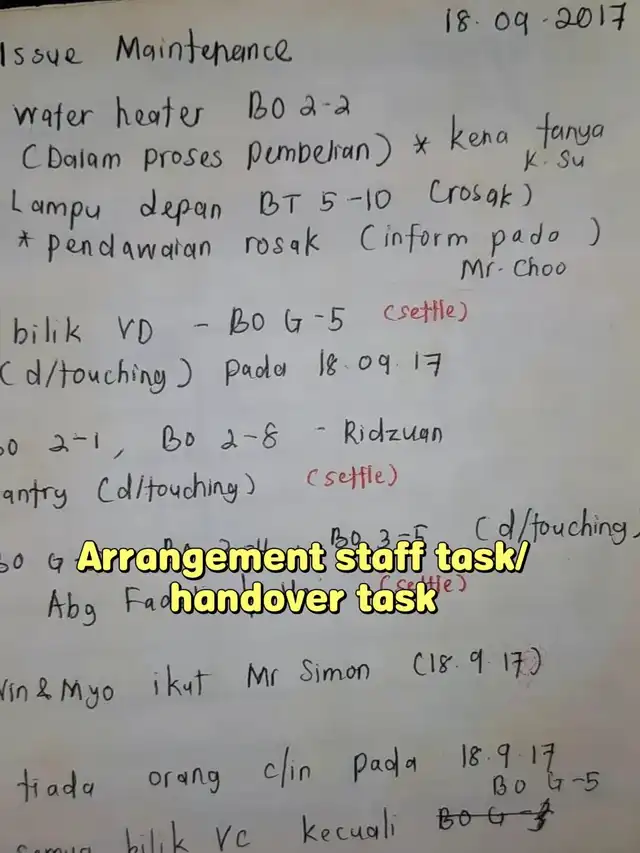 18.09.2017
Issue Maintenance
water heater BO 2-2
(Dalam proses pembelian) * kena tanya
K. Su
Lampu depan BT 5-10 (rosak)
* pendawaian rosak (inform pada )
Mr. Choo
bilik VD - BO G-5 (settle)
(d/touching) pada 18.09.17
BO 2-1, BO 2-8 - Ridzuan
antry (d/touching) (settle)
BO G BO 3-5 (d/touching,
Arrangement staff task/
handover task
Abg (settle)
Win & Myo ikut Mr Simon (18.9.17)
tiada orang c/in pada 18.9.17
BO G-5
bilik VC kecuali